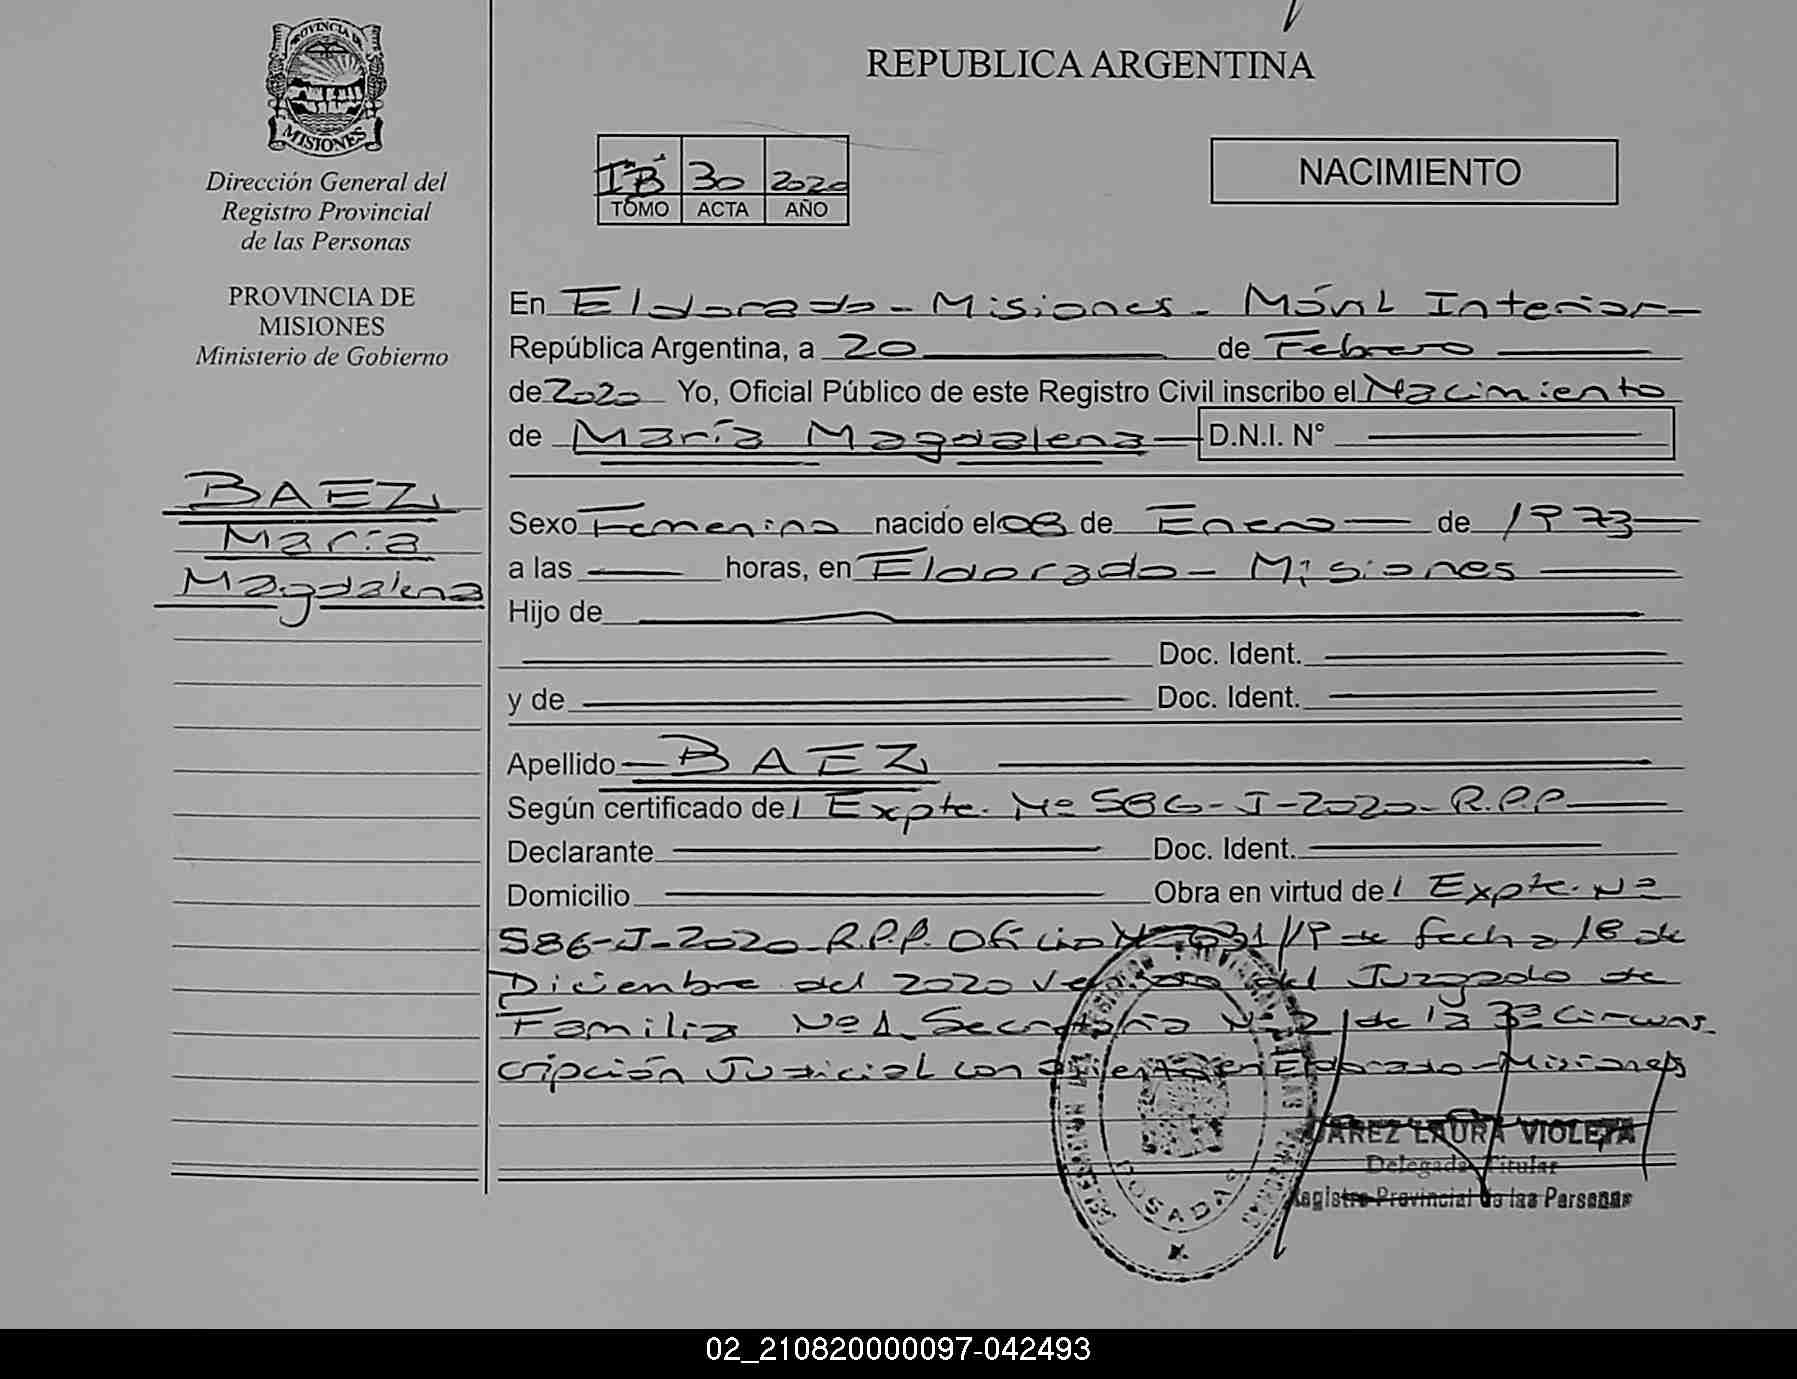 PROVINCIA DE
MISIONES
Dirección General del
Registro Provincial
de las Personas
PROVINCIA DE
MISIONES
Ministerio de Gobierno
BAEZ
María
Magdalena
REPUBLICA ARGENTINA
IºB 30 2020
TOMO ACTA AÑO
NACIMIENTO
En Eldorado - Misiones - Móvil Interior
República Argentina, a 20 de Febrero
de 2020 Yo, Oficial Público de este Registro Civil inscribo el Nacimiento
de María Magdalena D.N.I. N°
Sexo Femenino nacido el 08 de Enero de 1973
a las horas, en Eldorado - Misiones
Hijo de
Doc. Ident.
y de Doc. Ident.
Apellido BAEZ
Según certificado del Expte. Nº 586-J-2020-R.P.P
Declarante Doc. Ident.
Domicilio Obra en virtud del Expte. Nº
586-J-2020-R.P.P. Oficio Nº 631/19 de fecha 18 de
Diciembre del 2020 del Juzgado de
Familia Nº 1 Secretaría Nº 2 de la 3ª Circuns
cripción Judicial con asiento en Eldorado - Misiones
POSADAS
LAURA VIOLETA
Delegada Titular
Registro Provincial de las Personas
02_210820000097-042493